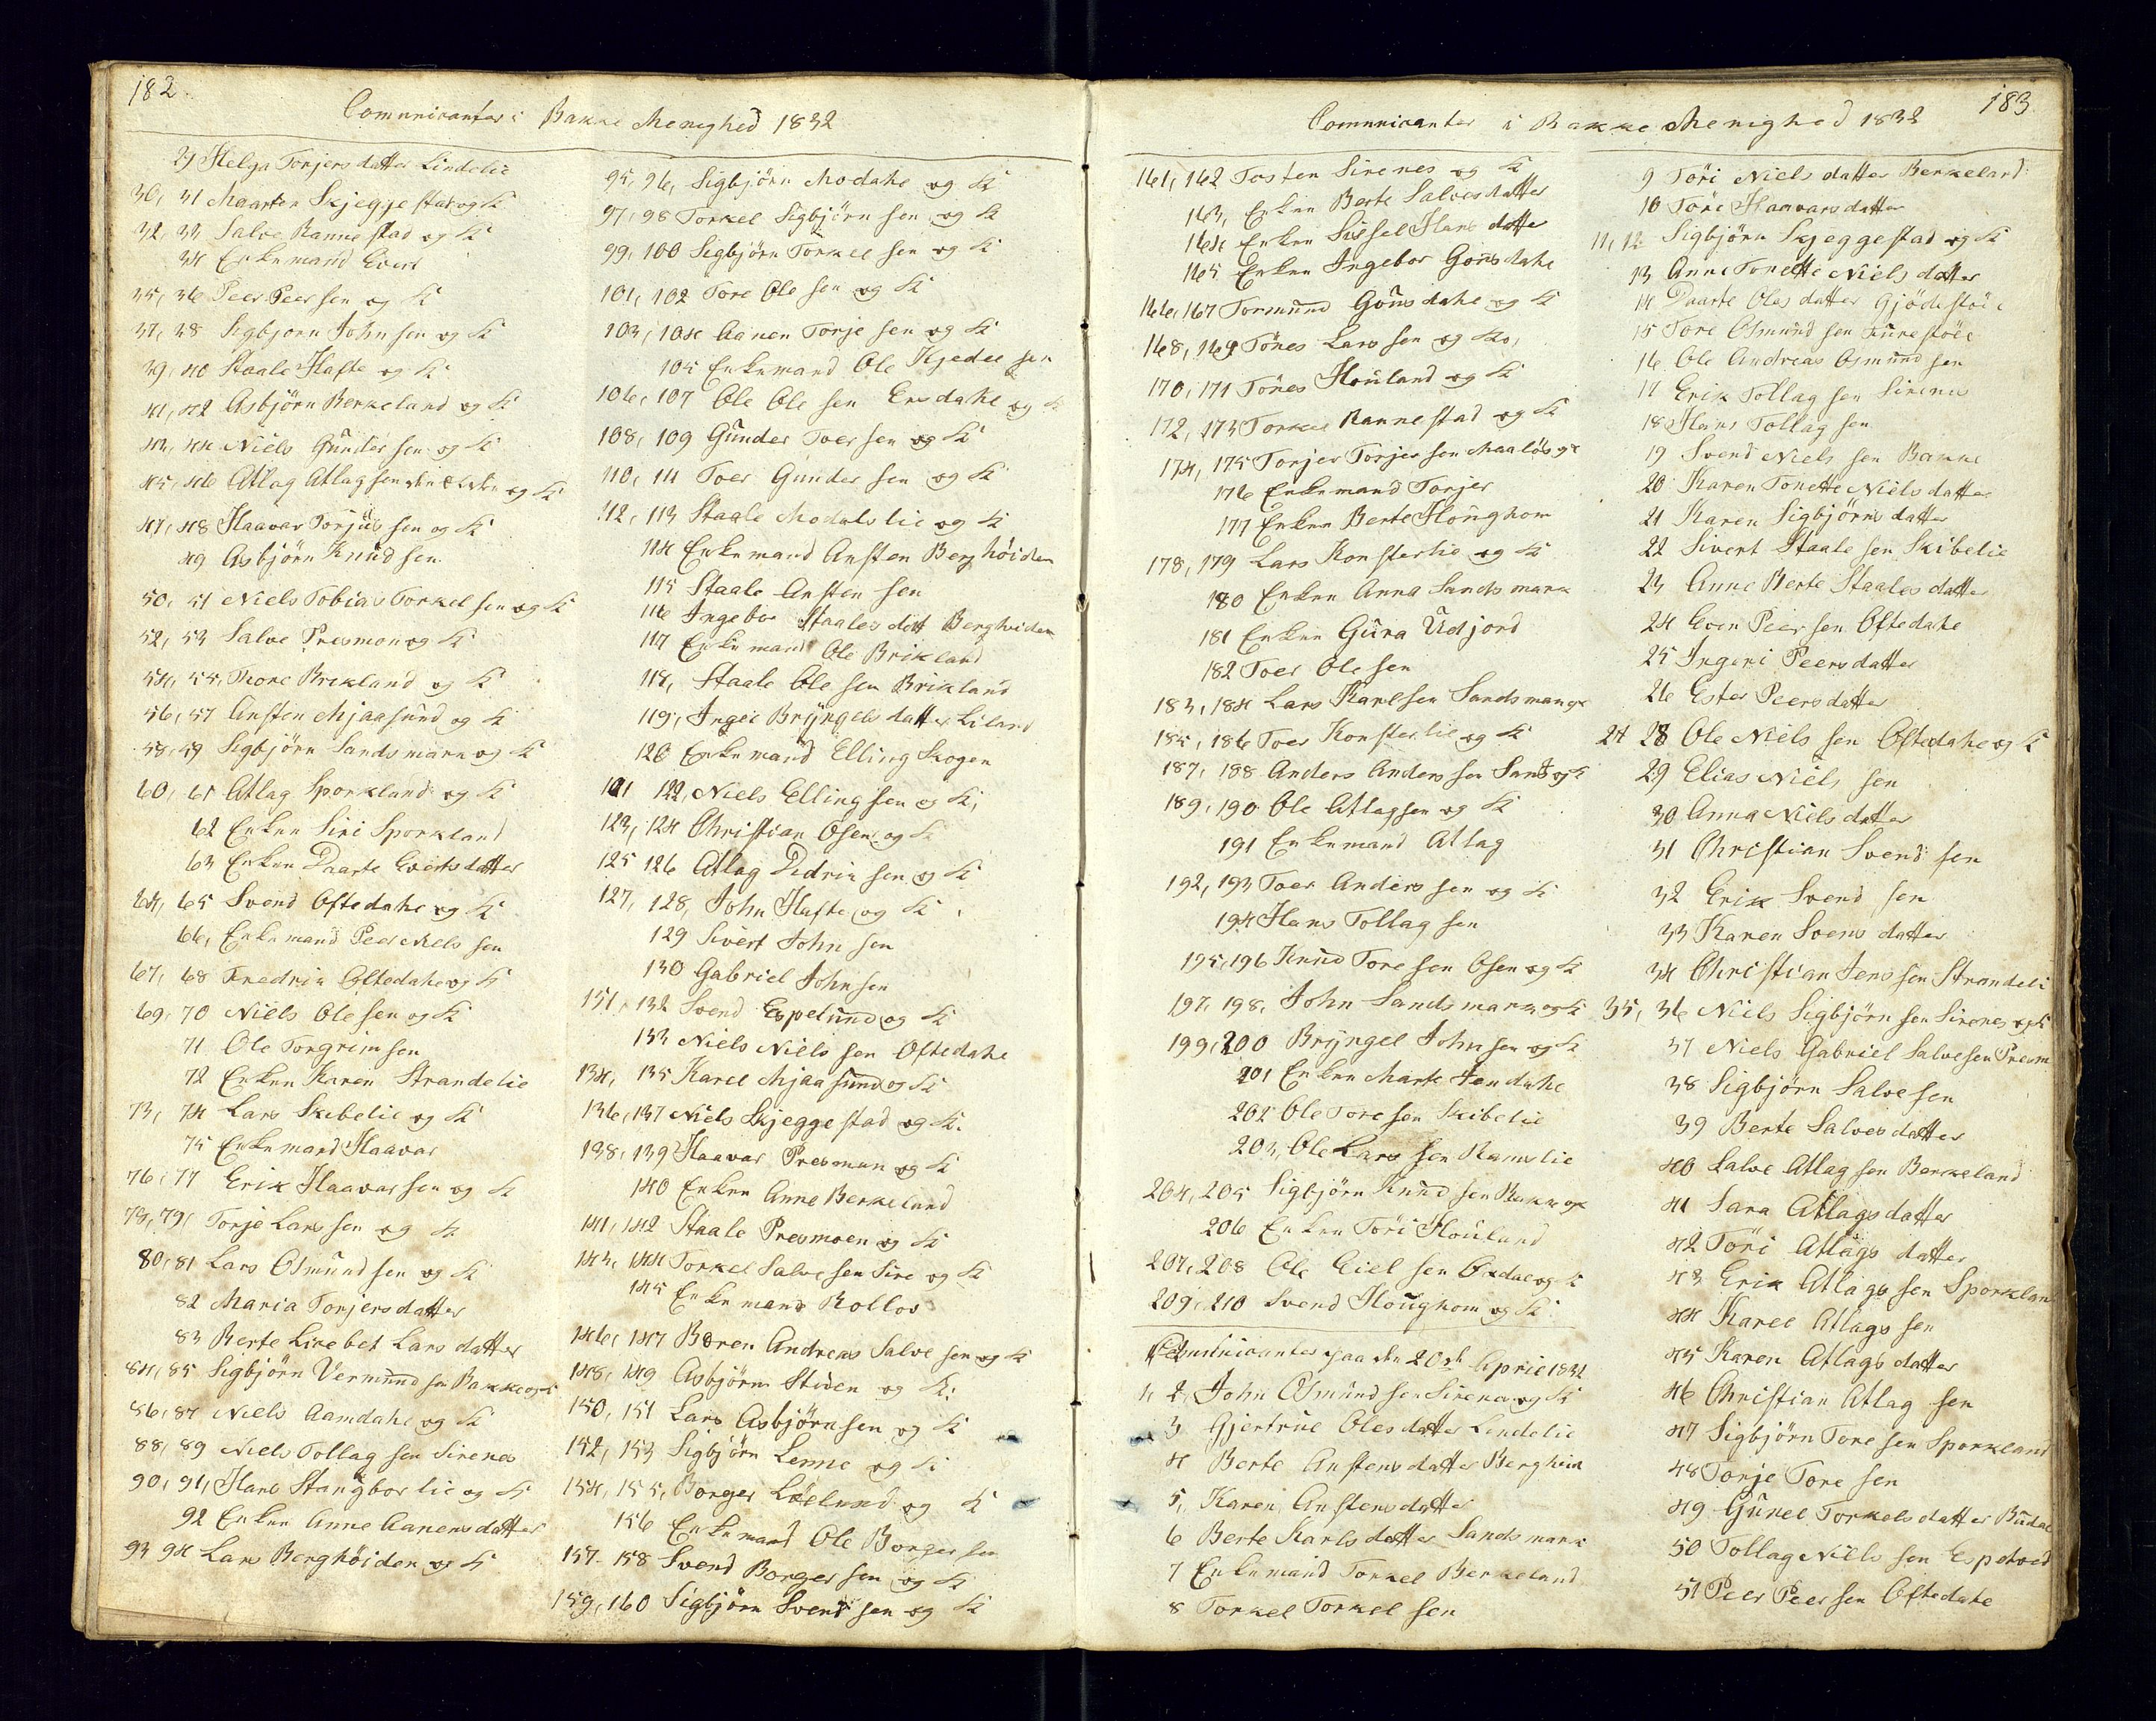 182
Comunicanter i Bakke Menighed 1832
29 Helga Torjersdatter Lindelie
30, 31 Maarten Skjeggestad og K
32, 33 Salve Rannestad og K
34 Enkemand Evert
35, 36 Peer Peersen og K
37, 38 Sigbjorn Johnsen og K
39, 40 Staale Hafte og K
41, 42 Asbjörn Berkeland og K
43, 44 Niels Gundersen og K
45, 46 Atlag Atlagsen og K
47, 48 Haavar Torjüssen og K
49 Asbjörn Knudsen
50, 51 Niels Tobias Torkelsen og K
52, 53 Salve Presmon og K
54, 55, Thore Brekland og K
56, 57 Ansten Mjaasund og K
58, 59 Sigbjörn Sandsmark og K
60, 61 Atlag Sporkland og K
62 Enken Siri Sporkland
63 Enken Daarte Evertsdatter
64, 65 Svend Oftedahe og K
66, Enkemand Peer Nielssen
67, 68 Fredrik Oftedahe og K
69, 70 Niels Olesen og K
71 Ole Torgrimsen
72 Enken Karen Strandelie
73, 74 Lars Skibelie og K
75 Enkemand Haavar
76, 77 Erik Haavarsen og K
78, 79, Torje Larssen og K
80, 81 Lars Osmundsen og K
82 Maria Torjersdatter
83 Berte Lisebet Larsdatter
84, 85 Sigbjörn Vermundsen Bakke og K
86, 87 Niels Aamdahl og K
88, 89 Niels Tollagsen Sirenes
90, 91, Hans Stangborlie og K
92 Enken Anne Aanensdatter
93 94 Lars Berghöiden og K
95, 96, Sigbjörn Modahe og K
97, 98 Torkel Sigbjörnsen og K
99, 100 Sigbjörn Torkelsen og K
101, 102 Tore Olesen og K
103, 104 Aanen Torjesen og K
105 Enkemand Ole Kjedelsen
106, 107 Ole Olesen Ersdahe og K
108, 109 Gunder Toersen og K
110, 111 Toer Gundersen og K
112, 113 Staale Modalslie og K
114 Enkemand Ansten Berghöiden
115 Staale Anstensen
116 Ingebor Staalesdatt Berghöiden
117 Enkemand Ole Brikland
118, Staale Olesen Brikland
119, Ingei Bryngelsdatter Liland
120 Enkemand Elling Skogen
121 122, Niels Ellingsen og K,
123, 124 Christian Osen og K
125 126 Atlag Didriksen og K
127, 128, John Hafte og K
129 Sivert Johnsen
130 Gabriel Johnsen
131, 132 Svend Espelund og K
133 Niels Nielssen Oftedahe
134, 135 Karel Mjaasund og K
136, 137 Niels Skjeggestad og K.
138, 139 Haavar Presmun og K
140 Enken Anne Berkeland
141, 142 Staale Presmoen og K
143, 144 Torkel Salvesen Sire og K
145 Enkemand Rollov
146, 147 Bören Andreas Salvesen og K
148, 149 Asbjörn Stiden og K:
150, 151 Lars Asbjörnsen og K
152, 153 Sigbjörn Lenne og K
154, 155, Borger Löelund og K
156 Enkemand Ole Borgersen
157- 158 Svend Borgersen og K
159, 160 Sigbjörn Svendsen og K
183
Comunicanter i Bakke Menighed 1832
161, 162 Tosten Sirenes og K
163, Enken Berte Salvesdatter
164 Enken Sissel Hansdatter
165 Enken Ingebor Gousdahe
166, 167 Tormund Gousdahe og K
168, 169 Tönes Larssen og Ko,
170, 171 Tönes Houland og K
172, 173 Torkel Rannestad og K
174, 175 Torjer Torjersen Maalös og K
176 Enkemand Torjer
177 Enken Berte Houghom
178, 179 Lars Konsterlie og K
180 Enken Anna Sandsmark
181 Enken Gura Udjord
182 Toer Olesen
183, 184 Lars Karlsen Sandsmark og K
185, 186 Toer Konsterlie og K
187, 188 Anders Anderssen Sand og K
189, 190 Ole Atlagsen og K
191 Enkemand Atlag
192, 193 Toer Anderssen og K
194 Hans Tollagsen
195, 196 Knud Toresen Osen og K
197, 198, John Sandsmark og K
199, 200 Bryngel Johnsen og K
201 Enken Marte Jendahe
202 Ole Toresen Skibelie
203, Ole Larssen Ramslie
204, 205 Sigbjörn Knudsen Bakke og K
206 Enken Töri Houland
207, 208 Ole Eielsen Oxdal og K
209, 210 Svend Houghom og K
Comunicanter paa den 20de April 1832
1, 2, John Osmundsen Sirenes og K
3 Gjertrue Olesdatter Lindelie
4 Berte Anstensdatter Berghöid
5, Karen Anstensdatter
6 Berte Karlsdatter Sandsmark
7 Enkemand Torkel Berkeland
8 Torkel Torkelsen
9 Töri Nielsdatter Berkeland
10 Töri Haavarsdatter
11, 12 Sigbjörn Skjeggestad og K
13 Anne Tonette Nielsdatter
14 Daarte Olesdatter Gjödestöel
15 Tore Osmundsen Furestöel
16 Ole Andreas Osmundsen
17 Erik Tollagsen Sirenes
18 Hans Tollagsen
19 Svend Nielssen Bakke
20 Karen Tonette Nielsdatter
21 Karen Sigbjörnsdatter
22 Sivert Staalesen Skibelie
23 Anne Berte Staalesdatter
24 Even Peersen Oftedahe
25 Ingeri Peersdatter
26 Ester Peersdatter
27 28 Ole Nielssen Oftedahe og K
29 Elias Nielssen
30 Anna Nielsdatter
31 Christian Svendsen
32 Erik Svendsen
33 Karen Svensdatter
34 Christian Jenssen Strandeli
35, 36 Niels Sigbjörnsen Sirenes og K
37 Niels Gabriel Salvesen Presm
38 Sigbjörn Salvesen
39 Berte Salvesdatter
40 Salve Atlagsen Berkeland
41 Sara Atlagsdatter
42 Töri Atlagsdatter
43 Erik Atlagssen Sporklan
44 Karel Atlagssen
45 Karen Atlagsdatter
46 Christian Atlagsen
47 Sigbjörn Toresen Sporkland
48 Torje Toresen
49 Gunel Torkelsdatter Budal
50 Tollag Nielssen Espetved
51 Peer Peersen Oftedahe